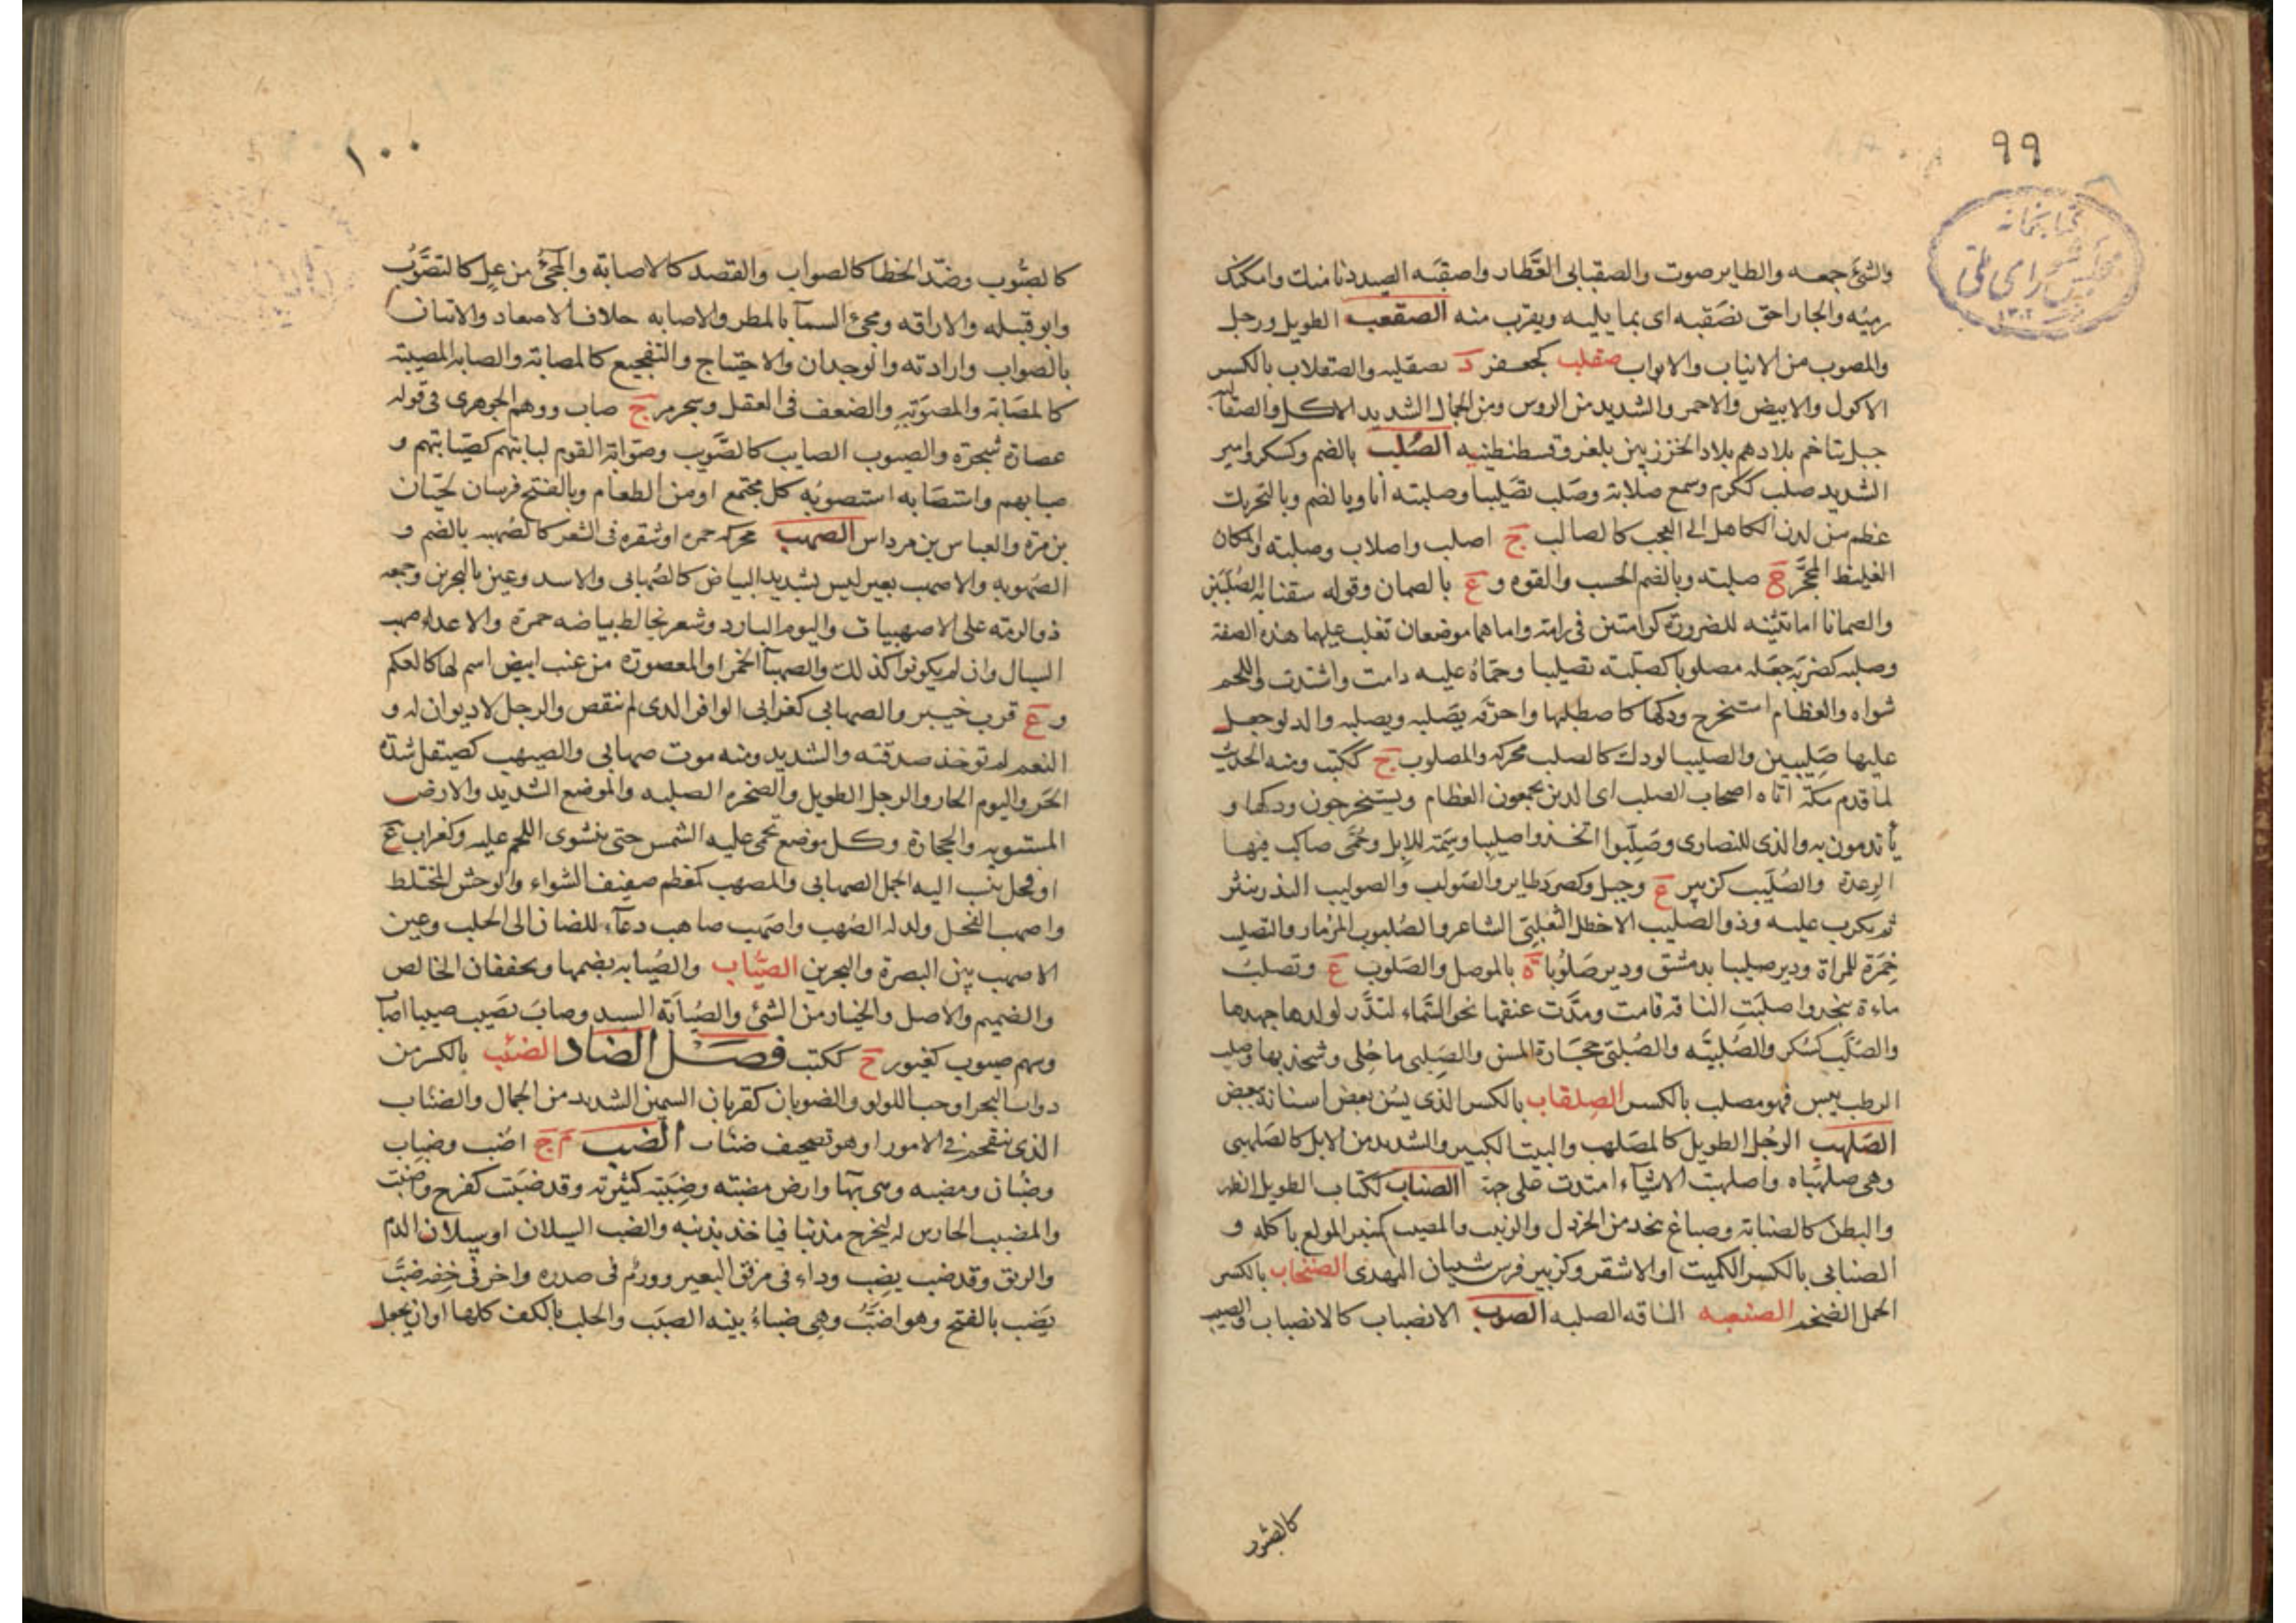 ٩٩
كتابخانه
مجلس شورای ملی
١٣٠٢
والشئ جمعه والطاير صوت والصقبانى العطار واصقبه الصيد دنا منك وامكنك
رميه والجار احق بصقبه اى بما يليه ويقرب منه الصقعب الطويل ورجل
والمصوب من الانياب والابواب صقلب كجعفر د بصقليه والصقلاب بالكسر
الاكول والابيض والاحمر والشديد من الروس ومن الجمال الشديد الاكل والصقالبه
جبل تتاخم بلادهم بلاد الخزر بين بلغر وقسطنطينيه الصلب بالضم وكسكر وامير
الشديد صلب ككرم وسمع صلابة وصلب تصليبا وصلبته انا وبالضم وبالتحريك
عظم من لدن الكاهل الى العجب كالصالب ج اصلب واصلاب وصلبته والمكان
الغليظ المحجر ج صلبته وبالضم الحسب والقوه و ع بالصمان وقوله سقنا به الصلبين
والصمانا اما تثنيه للضرورة كرامتين فى رامة واما هما موضعان تغلب عليهما هذه الصفة
وصلبه كضربه جعله مصلوبا كصلبته تصليبا وحماه عليه دامت واشتدت واللحم
شواه والعظام استخرج ودكها كاصطلبها واحرقه يصلبه ويصلبه والدلو جعل
عليها صليبين والصليب الودك كالصلب محركه والمصلوب ج ككتب ومنه الحديث
لما قدم مكة اتاه اصحاب الصلب اى الذين يجمعون العظام ويستخرجون ودكها و
يأتدمون به والذى للنصارى وصلبوا اتخذوا صليبا وسمة للابل وحمى صالب فيها
الرعدة والصليب كزبير ع وجبل وكصرد طاير والصولب والصوليب البذر ينثر
ثم يكرب عليه وذو الصليب الاخطل التغلبى الشاعر والصلبوب المزمار والتصليب
خمرة للمراة ودير صليبا بدمشق ودير صلوبا ة بالموصل والصلوب ع وتصلب
ماءة بنجد واصلبت الناقه قامت ومدت عنقها نحو السماء لتدر لولدها جهدها
والصلب كسكر والصلبيه والصلبى حجارة المسن والصلبى ما جلى وشحذ بها وصلب
الرطب يبس فهو مصلب بالكسر الصلقاب بالكسر الذى يسن بعض اسنانه ببعض
الصلهب الرجل الطويل كالمصلهب والبيت الكبير والشديد من الابل كالصلهبى
وهى صلهباه واصلهبت الاشياء امتدت على جهة الصناب ككتاب الطويل الظهر
والبطن كالصنابة وصباغ يتخذ من الخردل والزبيب والمصنب كمنبر المولع باكله و
الصنابى بالكسر الكميت او الاشقر وكزبير فرس شيبان النهدى الصنخاب بالكسر
الجمل الضخم الصنعبه الناقه الصلبه الصوب الانصباب كالانصباب والصيب
كالصوب
١٠٠
كالصيوب وضد الخطا كالصواب والقصد كالاصابة والمجئ من عل كالتصوب
وابو قبيله والاراقه ومجئ السمآ بالمطر والاصابه خلاف الاصعاد والاتيان
بالصواب وارادته والوجدان والاحتياج والتفجيع كالمصابة والصابة المصيبة
كالمصابة والمصوبة والضعف فى العقل وشجر مر ج صاب ووهم الجوهرى فى قوله
عصارة شجرة والصيوب الصايب كالصويب وصوابة القوم لبابتهم كصيابتهم و
صيابهم واستصابه استصوبه كل مجتمع او من الطعام وبالفتح فرسان لحسان
بن مرة والعباس بن مرداس الصهب محركه حمره او شقره فى الشعر كالصهبه بالضم و
الصهوبه والاصهب بعير ليس بشديد البياض كالصهابى والاسد وعين بالبحرين وجمعه
ذو الرمة على الاصهبيات واليوم البارد وشعر يخالط بياضه حمرة والاعداء صهب
السبال وان لم يكونوا كذلك والصهبآ الخمر او المعصورة من عنب ابيض اسم لها كالعلم
و ع قرب خيبر والصهابى كغرابى الوافر الذى لم ينقص والرجل لا ديوان له و
النعم لم توخذ صدقته والشديد ومنه موت صهابى والصيهب كصيقل شدة
الحر واليوم الحار والرجل الطويل والصخره الصلبه والموضع الشديد والارض
المستويه والحجارة وكل موضع تحمى عليه الشمس حتى ينشوى اللحم عليه وكغراب ع
او فحل ينسب اليه الجمل الصهابى والمصهب كمعظم صفيف الشواء والوحش المختلط
واصهب الفحل ولد له الصهب واصهب صاهب دعآء للضان الى الحلب وعين
الاصهب بين البصرة والبحرين الصياب والصيابه بضمها ويخففان الخالص
والصميم والاصل والخيار من الشئ والصيابة السيد وصاب يصيب صيبا اصاب
وسهم صيوب كغيور ج ككتب فصل الضاد الضئب بالكسر من
دواب البحر او حب اللولو والضوبان كقربان السمين الشديد من الجمال والضئاب
الذى ينقحم فى الامور او هو تصحيف ضئاب الضب م ج اضب وضباب
وضبان ومضبه وهى بهآ وارض مضبته وضببته كثيرته وقد ضببت كفرح وضبت
والمضبب الحارس له ليخرج مذنبا فياخذ بذنبه والضب السيلان او سيلان الدم
والريق وقد ضب يضب وداء فى مرفق البعير وورم فى صدره واخر فى خفه ضب
يضب بالفتح وهو اضب وهى ضباء بينه الضبب والحلب بالكف كلها او ان يجعل